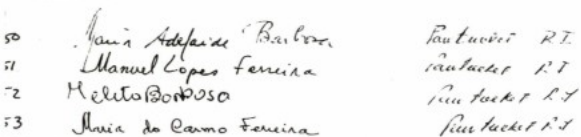 50 Maria Adelaide Barbosa Pautucket R.I.
51 Manuel Lopes Ferreira Pautucket R.I
52 Melito Barbosa Pautucket R.I
53 Maria do Carmo Ferreira Pautucket R.I